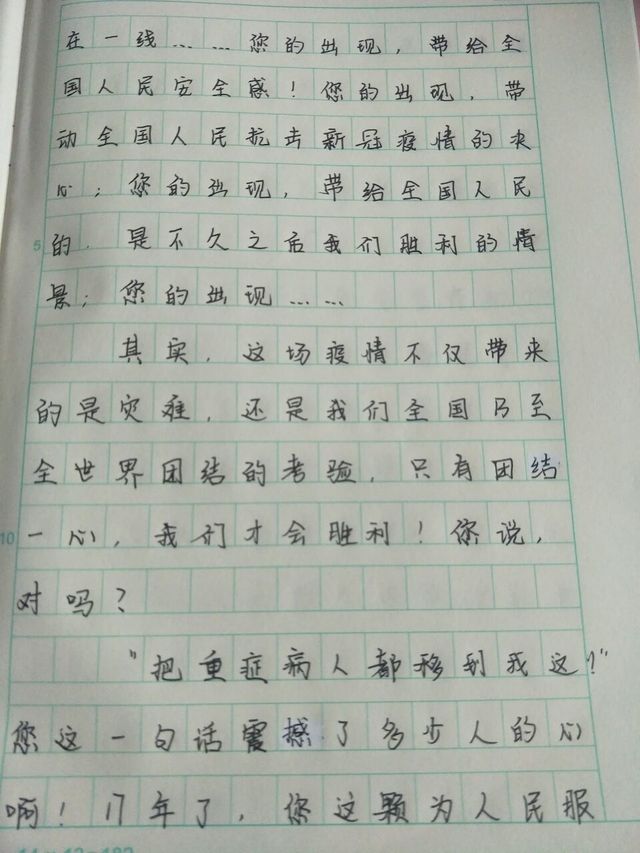 在一线……您的出现，带给全
国人民安全感！您的出现，带
动全国人民抗击新冠疫情的决
心；您的出现，带给全国人民
5的，是不久之后我们胜利的情
景；您的出现……
其实，这场疫情不仅带来
的是灾难，还是我们全国乃至
全世界团结的考验，只有团结
10一心，我们才会胜利！您说，
对吗？
“把重症病人都移到我这？”
您这一句话震撼了多少人的心
啊！17年了，您这颗为人民服